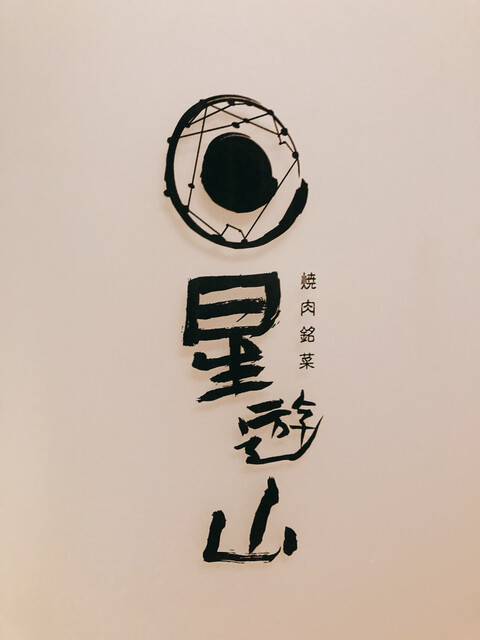 星遊山
焼肉銘菜